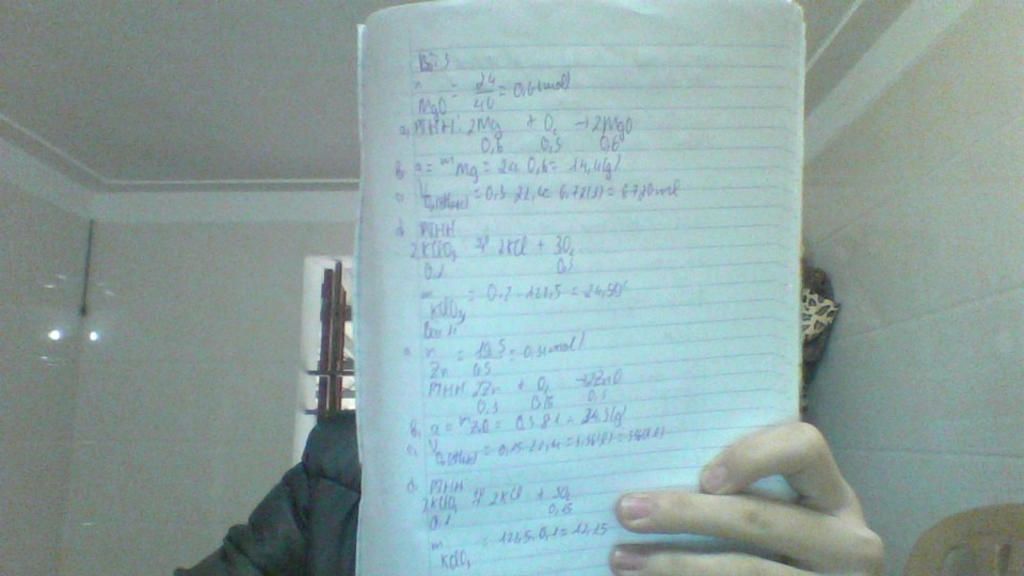 Bài 3
n MgO = 24/40 = 0,6(mol)
a, PTHH: 2Mg + O2 → 2MgO
0,6 0,3 0,6
b, a = mMg = 24.0,6 = 14,4(g)
c, VO2(đktc) = 0,3.22,4 = 6,72(l) = 6720ml
d, PTHH
2KClO3 t° 2KCl + 3O2
0,2 0,3
m KClO3 = 0,2.122,5 = 24,5g
Bài 4
a, n Zn = 19,5/65 = 0,3(mol)
PTHH 2Zn + O2 → 2ZnO
0,3 0,15 0,3
b, a = mZnO = 0,3.81 = 24,3(g)
c, VO2(đktc) = 0,15.22,4 = 3,36(l) =
d, PTHH
2KClO3 t° 2KCl + 3O2
0,1 0,15
m KClO3 = 122,5.0,1 = 12,25